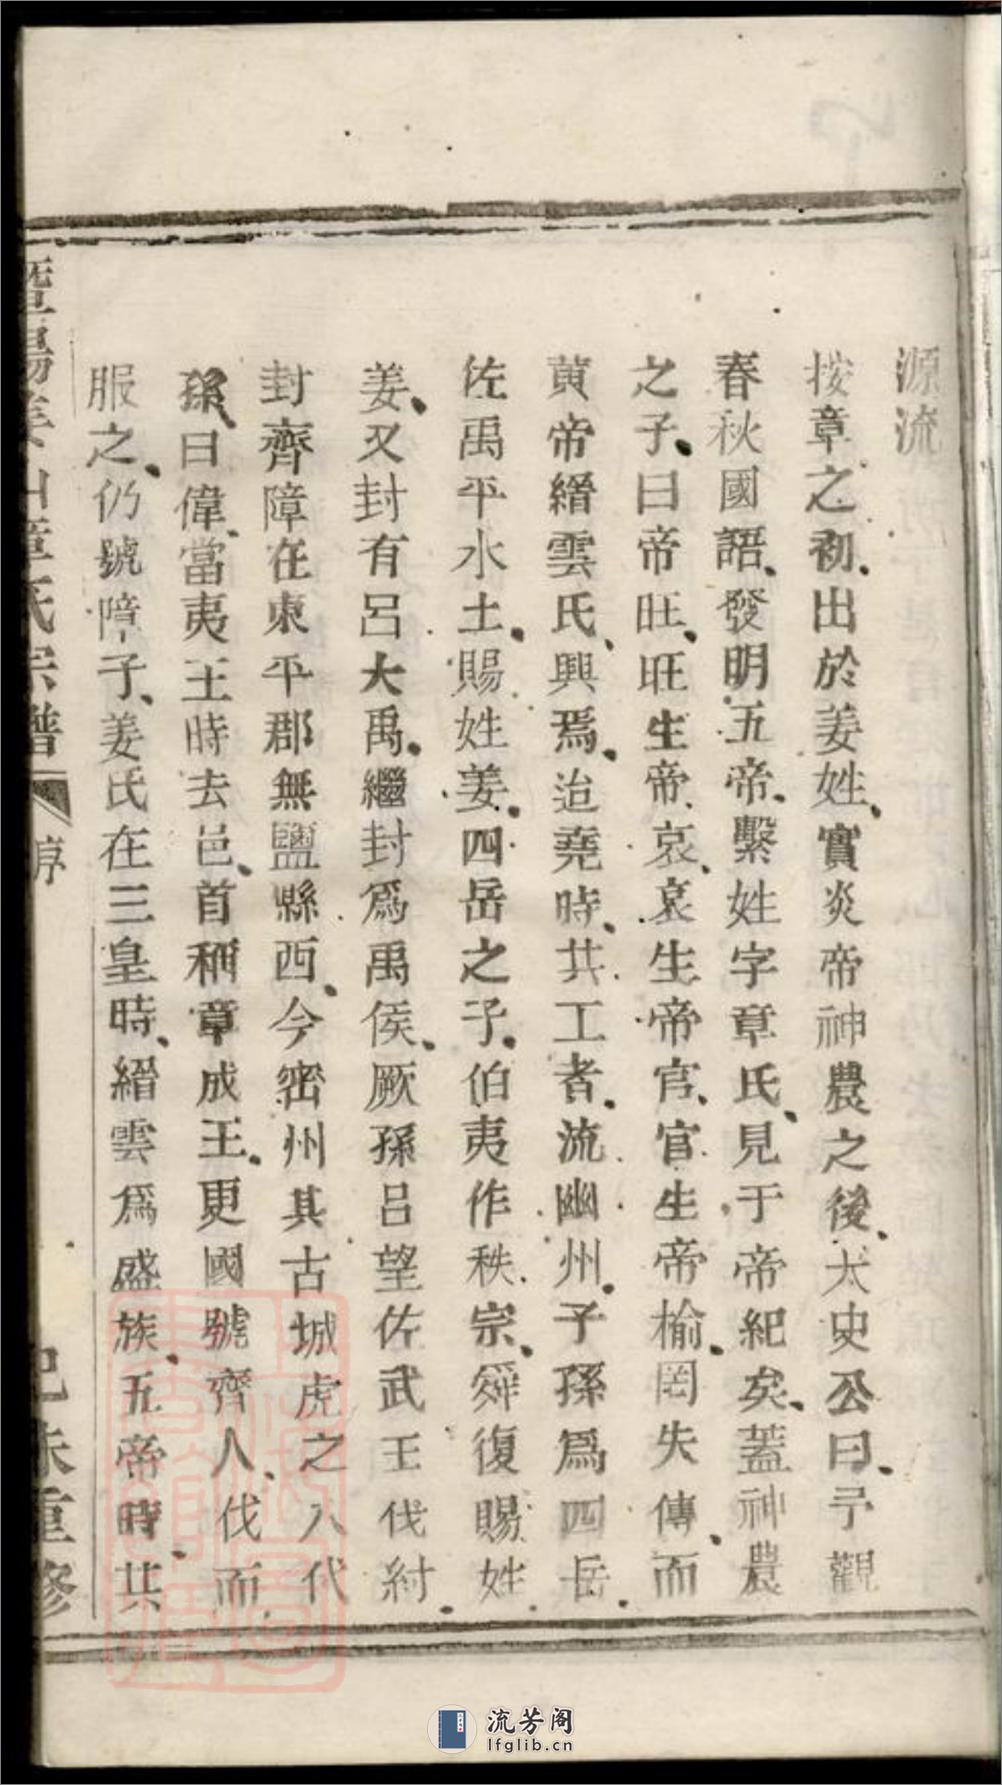 源流
按章之初出於姜姓實炎帝神農之後太史公曰予觀
春秋國語發明五帝繫姓字章氏見于帝紀矣蓋神農
之子曰帝旺旺生帝哀哀生帝官官生帝榆罔失傳而
黃帝縉雲氏興焉迨堯時共工者流幽州子孫爲四岳
佐禹平水土賜姓姜四岳之子伯夷作秩宗舜復賜姓
姜又封有呂大禹繼封爲禹侯厥孫呂望佐武王伐紂
封齊障在東平郡無鹽縣西今密州其古城虎之八代
孫曰偉當夷王時去邑首稱章成王更國號齊人伐而
服之仍號障子姜氏在三皇時縉雲爲盛族五帝時共
暨陽 山章氏宗譜 序 己未重修
流芳阁
lfglib.cn